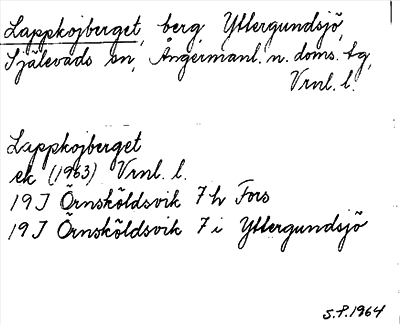 Lappkojberget, berg, Yttergundsjö,
Själevads sn, Ångermanl. n. doms. tg,
Vrnl. l.
Lappkojberget
ek (1963) Vrnl. l.
19 J Örnsköldsvik 7 h Fors
19 J Örnsköldsvik 7 i Yttergundsjö
S.P. 1964